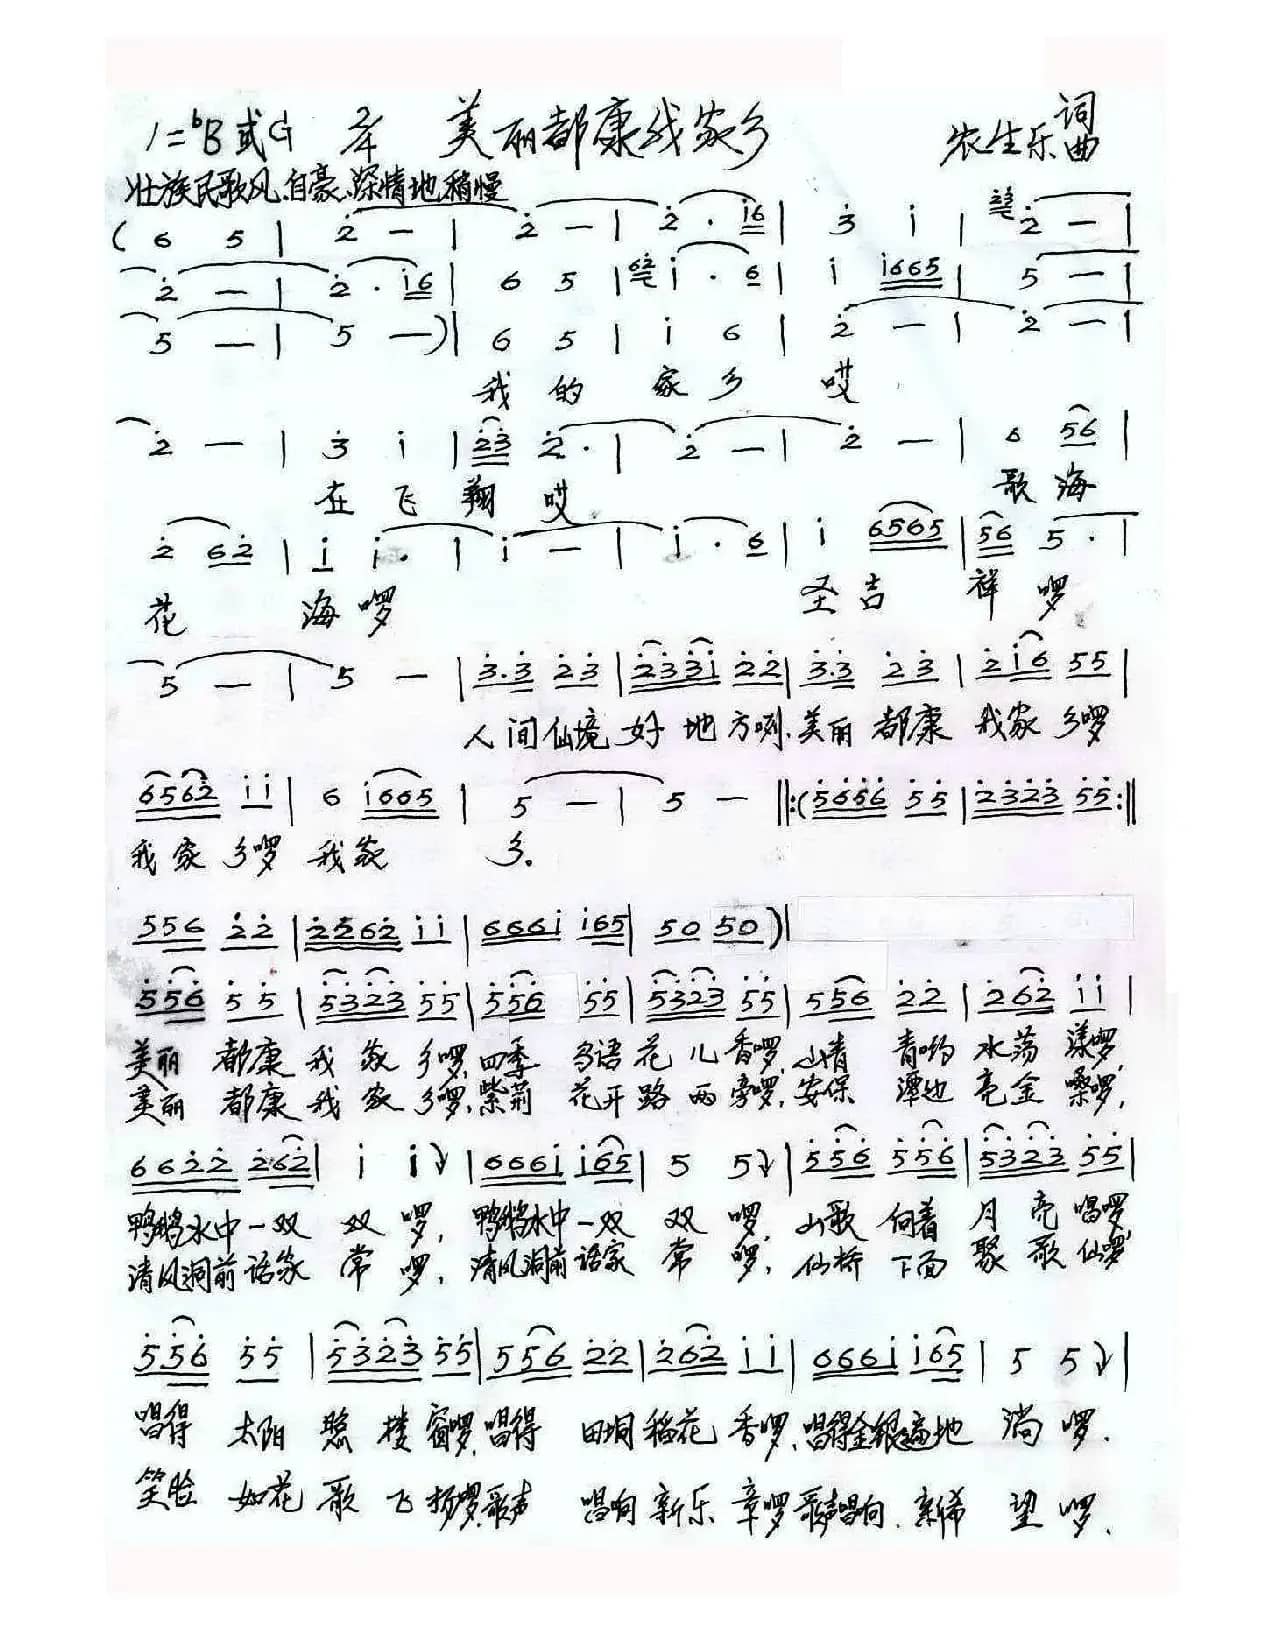 1=♭B或G 2/4 美丽都康我家乡 农生乐 词曲
壮族民歌风 自豪、深情地 稍慢
( 6 5 | 2 — | 2 — | 2 · i6 | 3 i | 2 — |
2 — | 2 · i6 | 6 5 | i · 6 | i i665 | 5 — |
5 — | 5 — ) | 6 5 | i 6 | 2 — | 2 — |
我的家乡哎
2 — | 3 i | 23 2 · | 2 — | 2 — | 6 56 |
在飞翔哎 歌海
2 62 | i i · | i — | i · 6 | i 6565 | 56 5 · |
花海啰 圣吉祥啰
5 — | 5 — | 3·3 23 | 2331 22 | 3·3 23 | 2i6 55 |
人间仙境好地方咧,美丽都康我家乡啰
6562 ii | 6 i665 | 5 — | 5 — ‖:( 5656 55 | 2323 55 :‖
我家乡啰我家乡。
556 22 | 2262 ii | 666i i65 | 50 50 ) |
556 55 | 5323 55 | 556 55 | 5323 55 | 556 22 | 262 ii |
美丽都康我家乡啰,四季鸟语花儿香啰,山青青哟水荡漾啰,
美丽都康我家乡啰,紫荆花开路两旁啰,安保潭边亮金嗓啰,
6622 262 | i i | 666i i65 | 5 5 | 556 556 | 5323 55 |
鸭鹅水中一双双啰,鸭鹅水中一双双啰,山歌向着月亮唱啰
清风洞前话家常啰,清风洞前话家常啰,仙桥下面聚歌仙啰
556 55 | 5323 55 | 556 22 | 262 ii | 666i i65 | 5 5 |
唱得太阳照楼窗啰,唱得田垌稻花香啰,唱得金银遍地淌啰.
笑脸如花歌飞扬啰,歌声唱响新乐章啰歌声唱响.新希望啰.